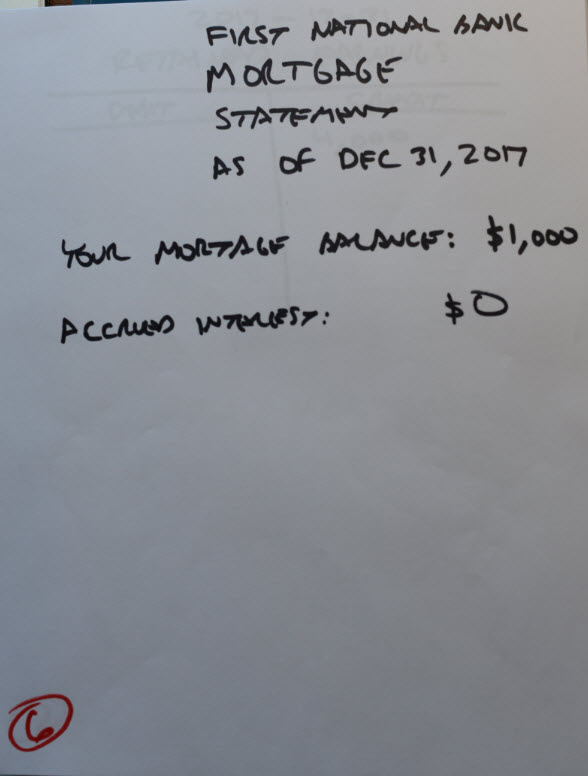 FIRST NATIONAL BANK
MORTGAGE
STATEMENT
AS OF DEC 31, 2017
YOUR MORTAGE BALANCE: $1,000
ACCRUED INTEREST: $0
6